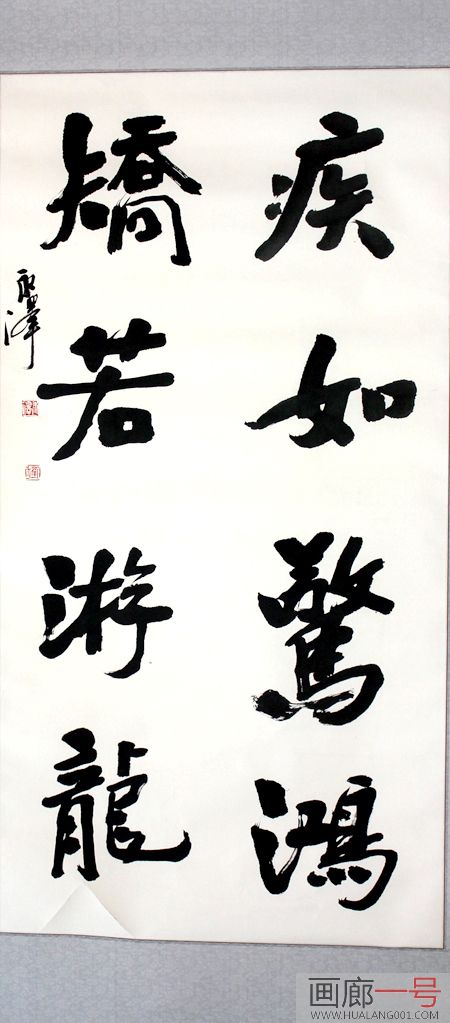 疾如驚鴻
矯若游龍
永澤
画廊一号
WWW.HUALANG001.COM